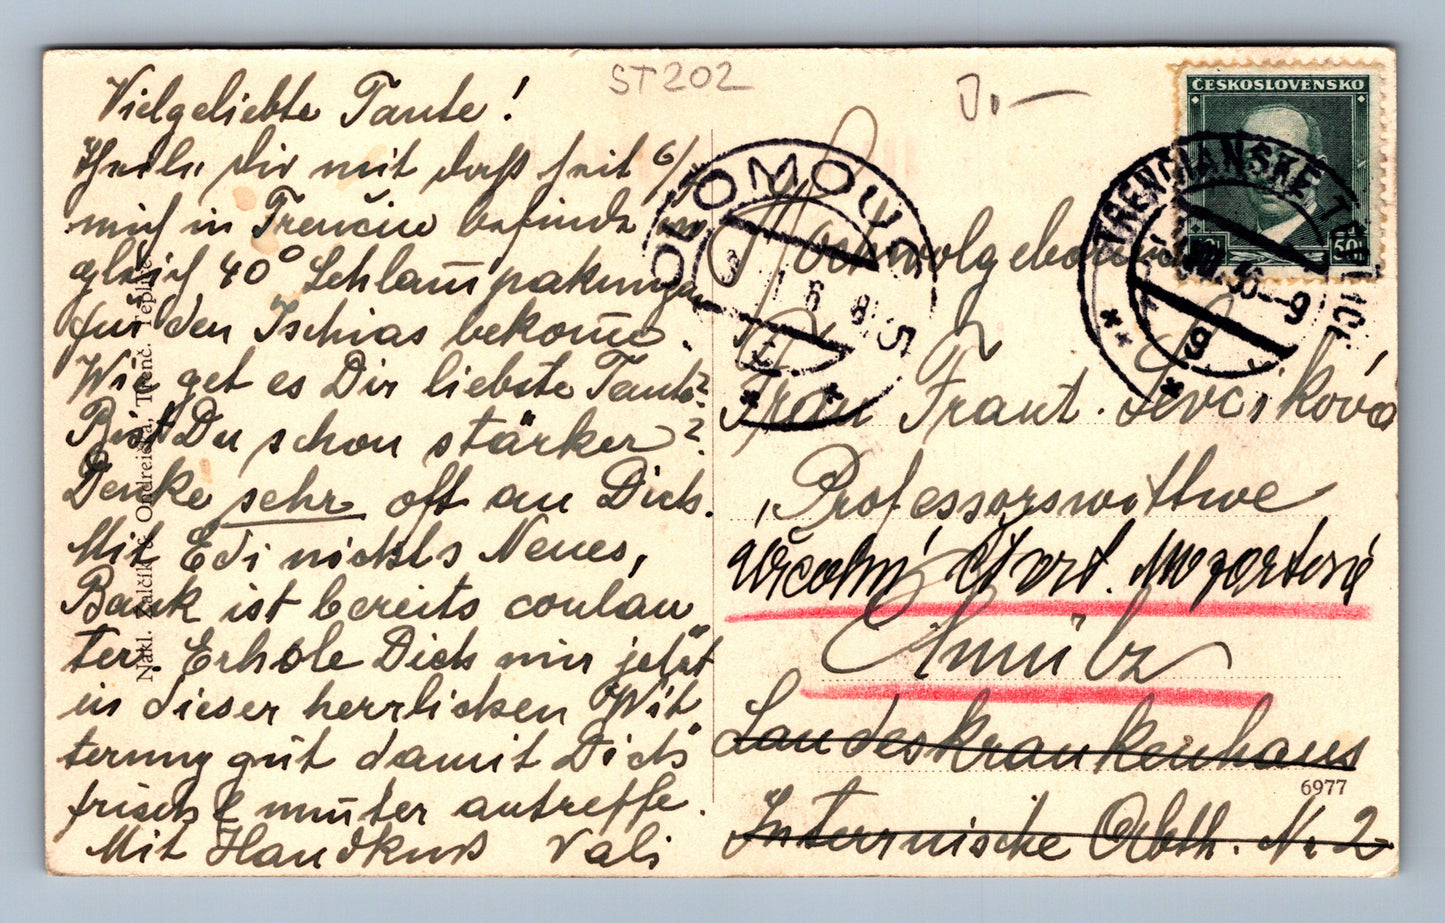 Vielgeliebte Tante!
Theile Dir mit daß seit 6/
mich in Trenčin befinde u
gleich 40° Schlam̅pakungen
für den Ischias bekom̅e.
Wie get es Dir liebste Tante?
Bist Du schon stärker?
Denke sehr oft an Dich.
Mit Edi nichts Neues,
Bank ist bereits coulan
ter. Erhole Dich nur jetzt
in dieser herrlichen Wit
terung gut damit Dich
frisch & munter antreffe.
Mit Handkuß Vali
Nakl. Žalčík & Ondreička, Trenč. Teplice
ST202
ČESKOSLOVENSKO
50h
TRENČIANSKE TEPLICE
36-9
OLOMOUC
Hochwolgeboren
Frau Frant. Ševčíková
Professorswittwe
čtvrt.
Olmütz
Landeskrankenhaus
6977
Internische Abth. Nr 2